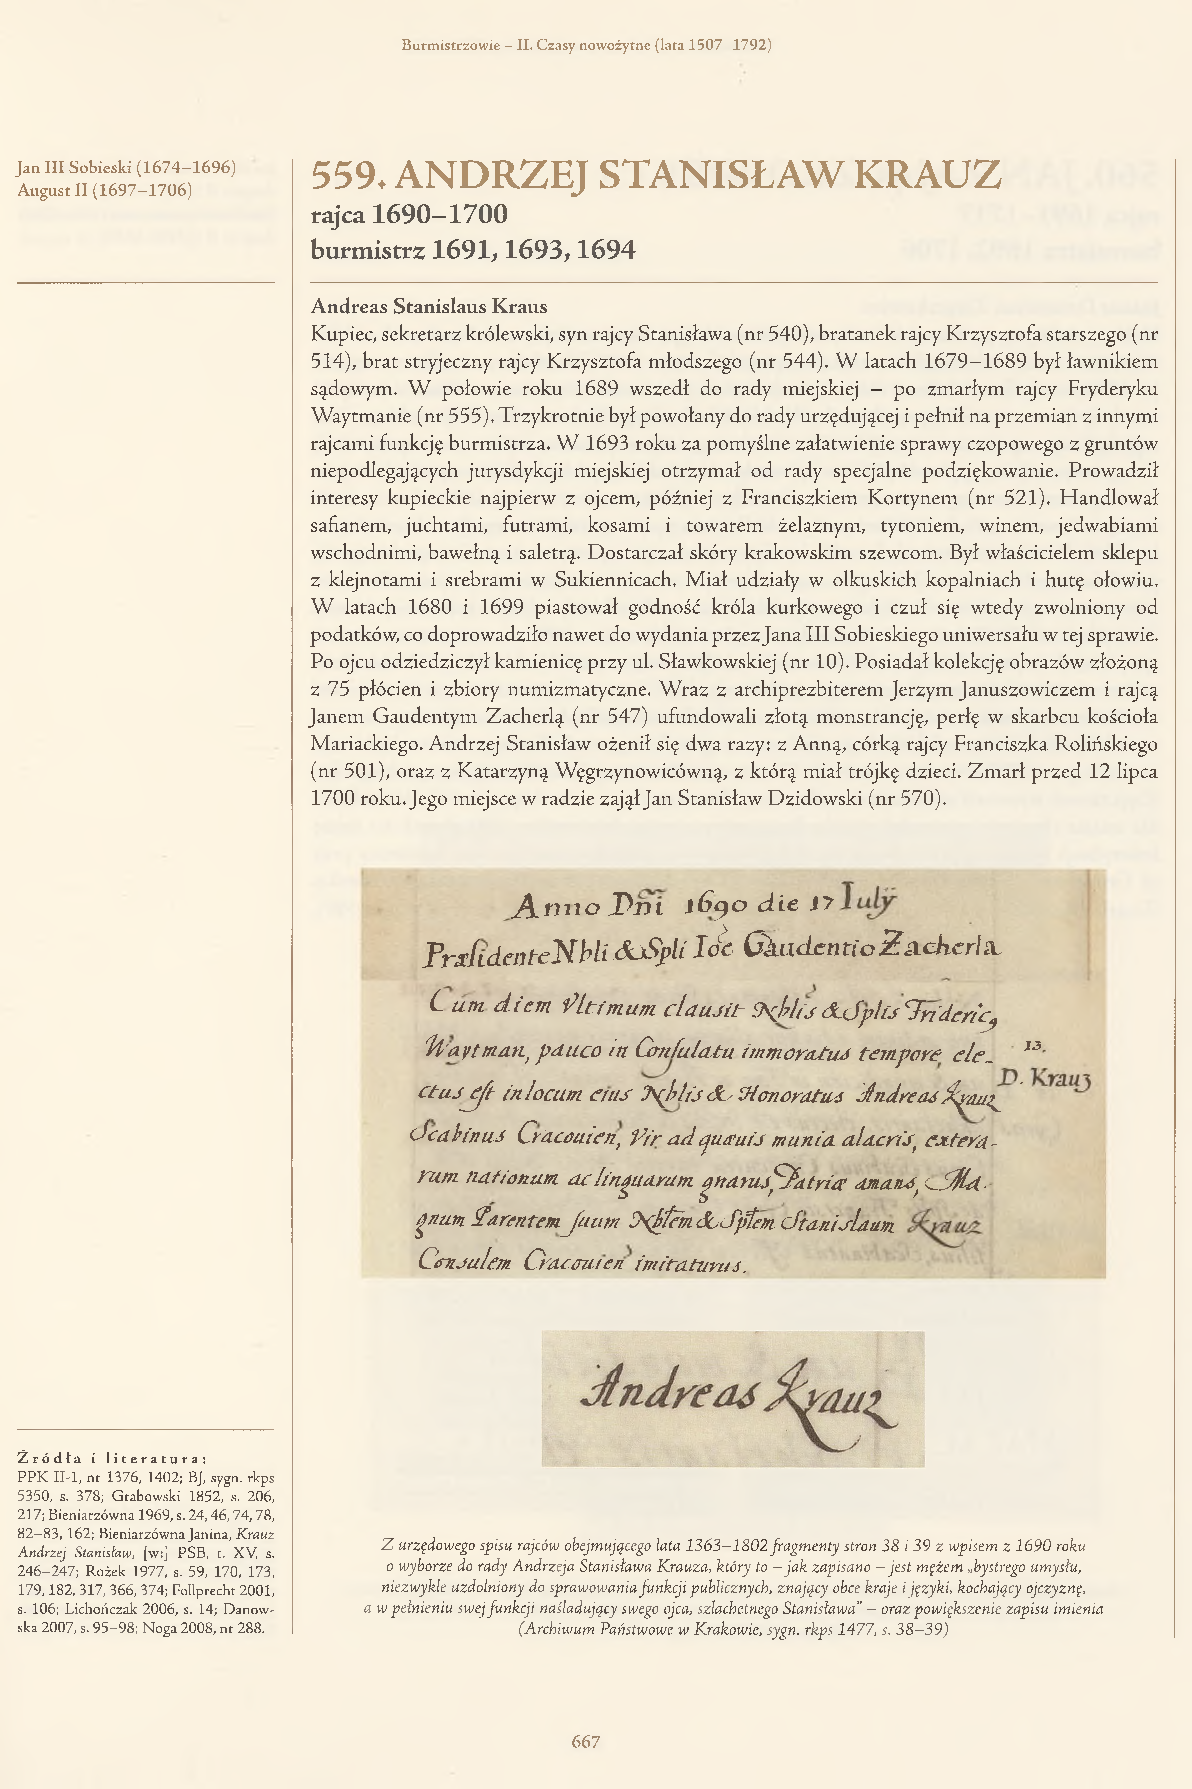 Burmistrzowie – II. Czasy nowożytne (lata 1507 1792)
Jan III Sobieski (1674–1696)
August II (1697–1706)
559. ANDRZEJ STANISŁAW KRAUZ
rajca 1690–1700
burmistrz 1691, 1693, 1694
Andreas Stanislaus Kraus
Kupiec, sekretarz królewski, syn rajcy Stanisława (nr 540), bratanek rajcy Krzysztofa starszego (nr
514), brat stryjeczny rajcy Krzysztofa młodszego (nr 544). W latach 1679–1689 był ławnikiem
sądowym. W połowie roku 1689 wszedł do rady miejskiej – po zmarłym rajcy Fryderyku
Waytmanie (nr 555). Trzykrotnie był powołany do rady urzędującej i pełnił na przemian z innymi
rajcami funkcję burmistrza. W 1693 roku za pomyślne załatwienie sprawy czopowego z gruntów
niepodlegających jurysdykcji miejskiej otrzymał od rady specjalne podziękowanie. Prowadził
interesy kupieckie najpierw z ojcem, później z Franciszkiem Kortynem (nr 521). Handlował
safianem, juchtami, futrami, kosami i towarem żelaznym, tytoniem, winem, jedwabiami
wschodnimi, bawełną i saletrą. Dostarczał skóry krakowskim szewcom. Był właścicielem sklepu
z klejnotami i srebrami w Sukiennicach. Miał udziały w olkuskich kopalniach i hutę ołowiu.
W latach 1680 i 1699 piastował godność króla kurkowego i czuł się wtedy zwolniony od
podatków, co doprowadziło nawet do wydania przez Jana III Sobieskiego uniwersału w tej sprawie.
Po ojcu odziedziczył kamienicę przy ul. Sławkowskiej (nr 10). Posiadał kolekcję obrazów złożoną
z 75 płócien i zbiory numizmatyczne. Wraz z archiprezbiterem Jerzym Januszowiczem i rajcą
Janem Gaudentym Zacherlą (nr 547) ufundowali złotą monstrancję, perłę w skarbcu kościoła
Mariackiego. Andrzej Stanisław ożenił się dwa razy: z Anną, córką rajcy Franciszka Rolińskiego
(nr 501), oraz z Katarzyną Węgrzynowicówną, z którą miał trójkę dzieci. Zmarł przed 12 lipca
1700 roku. Jego miejsce w radzie zajął Jan Stanisław Dzidowski (nr 570).
Anno Dñi 1690 die 17 Iulÿ
Præsidente Nbli & Spli Ioe Gaudentio Zacherla
Cum diem Vltimum clausit Nblis & Splis Frideric9
Waytman, pauco in Consulatu immoratus tempore, ele-
ctus est in locum eius Nblis & Honoratus Andreas Krauz
Scabinus Cracouien, Vir ad quæuis munia alacris, extera-
rum nationum ac linguarum gnarus, Patriæ amans, Ma-
gnum Parentem suum Nblem & Splem Stanislaum Krauz
Consulem Cracouien imitaturus.
13.
D. Krauz
Andreas Krauz
Źródła i literatura:
PPK II-1, nr 1376, 1402; BJ, sygn. rkps
5350, s. 378; Grabowski 1852, s. 206,
217; Bieniarzówna 1969, s. 24, 46, 74, 78,
82–83, 162; Bieniarzówna Janina, Krauz
Andrzej Stanisław, [w:] PSB, t. XV, s.
246–247; Rożek 1977, s. 59, 170, 173,
179, 182, 317, 366, 374; Follprecht 2001,
s. 106; Lichończak 2006, s. 14; Danow-
ska 2007, s. 95–98; Noga 2008, nr 288.
Z urzędowego spisu rajców obejmującego lata 1363–1802 fragmenty stron 38 i 39 z wpisem z 1690 roku
o wyborze do rady Andrzeja Stanisława Krauza, który to – jak zapisano – jest mężem „bystrego umysłu,
niezwykle uzdolniony do sprawowania funkcji publicznych, znający obce kraje i języki, kochający ojczyznę,
a w pełnieniu swej funkcji naśladujący swego ojca, szlachetnego Stanisława” – oraz powiększenie zapisu imienia
(Archiwum Państwowe w Krakowie, sygn. rkps 1477, s. 38–39)
667